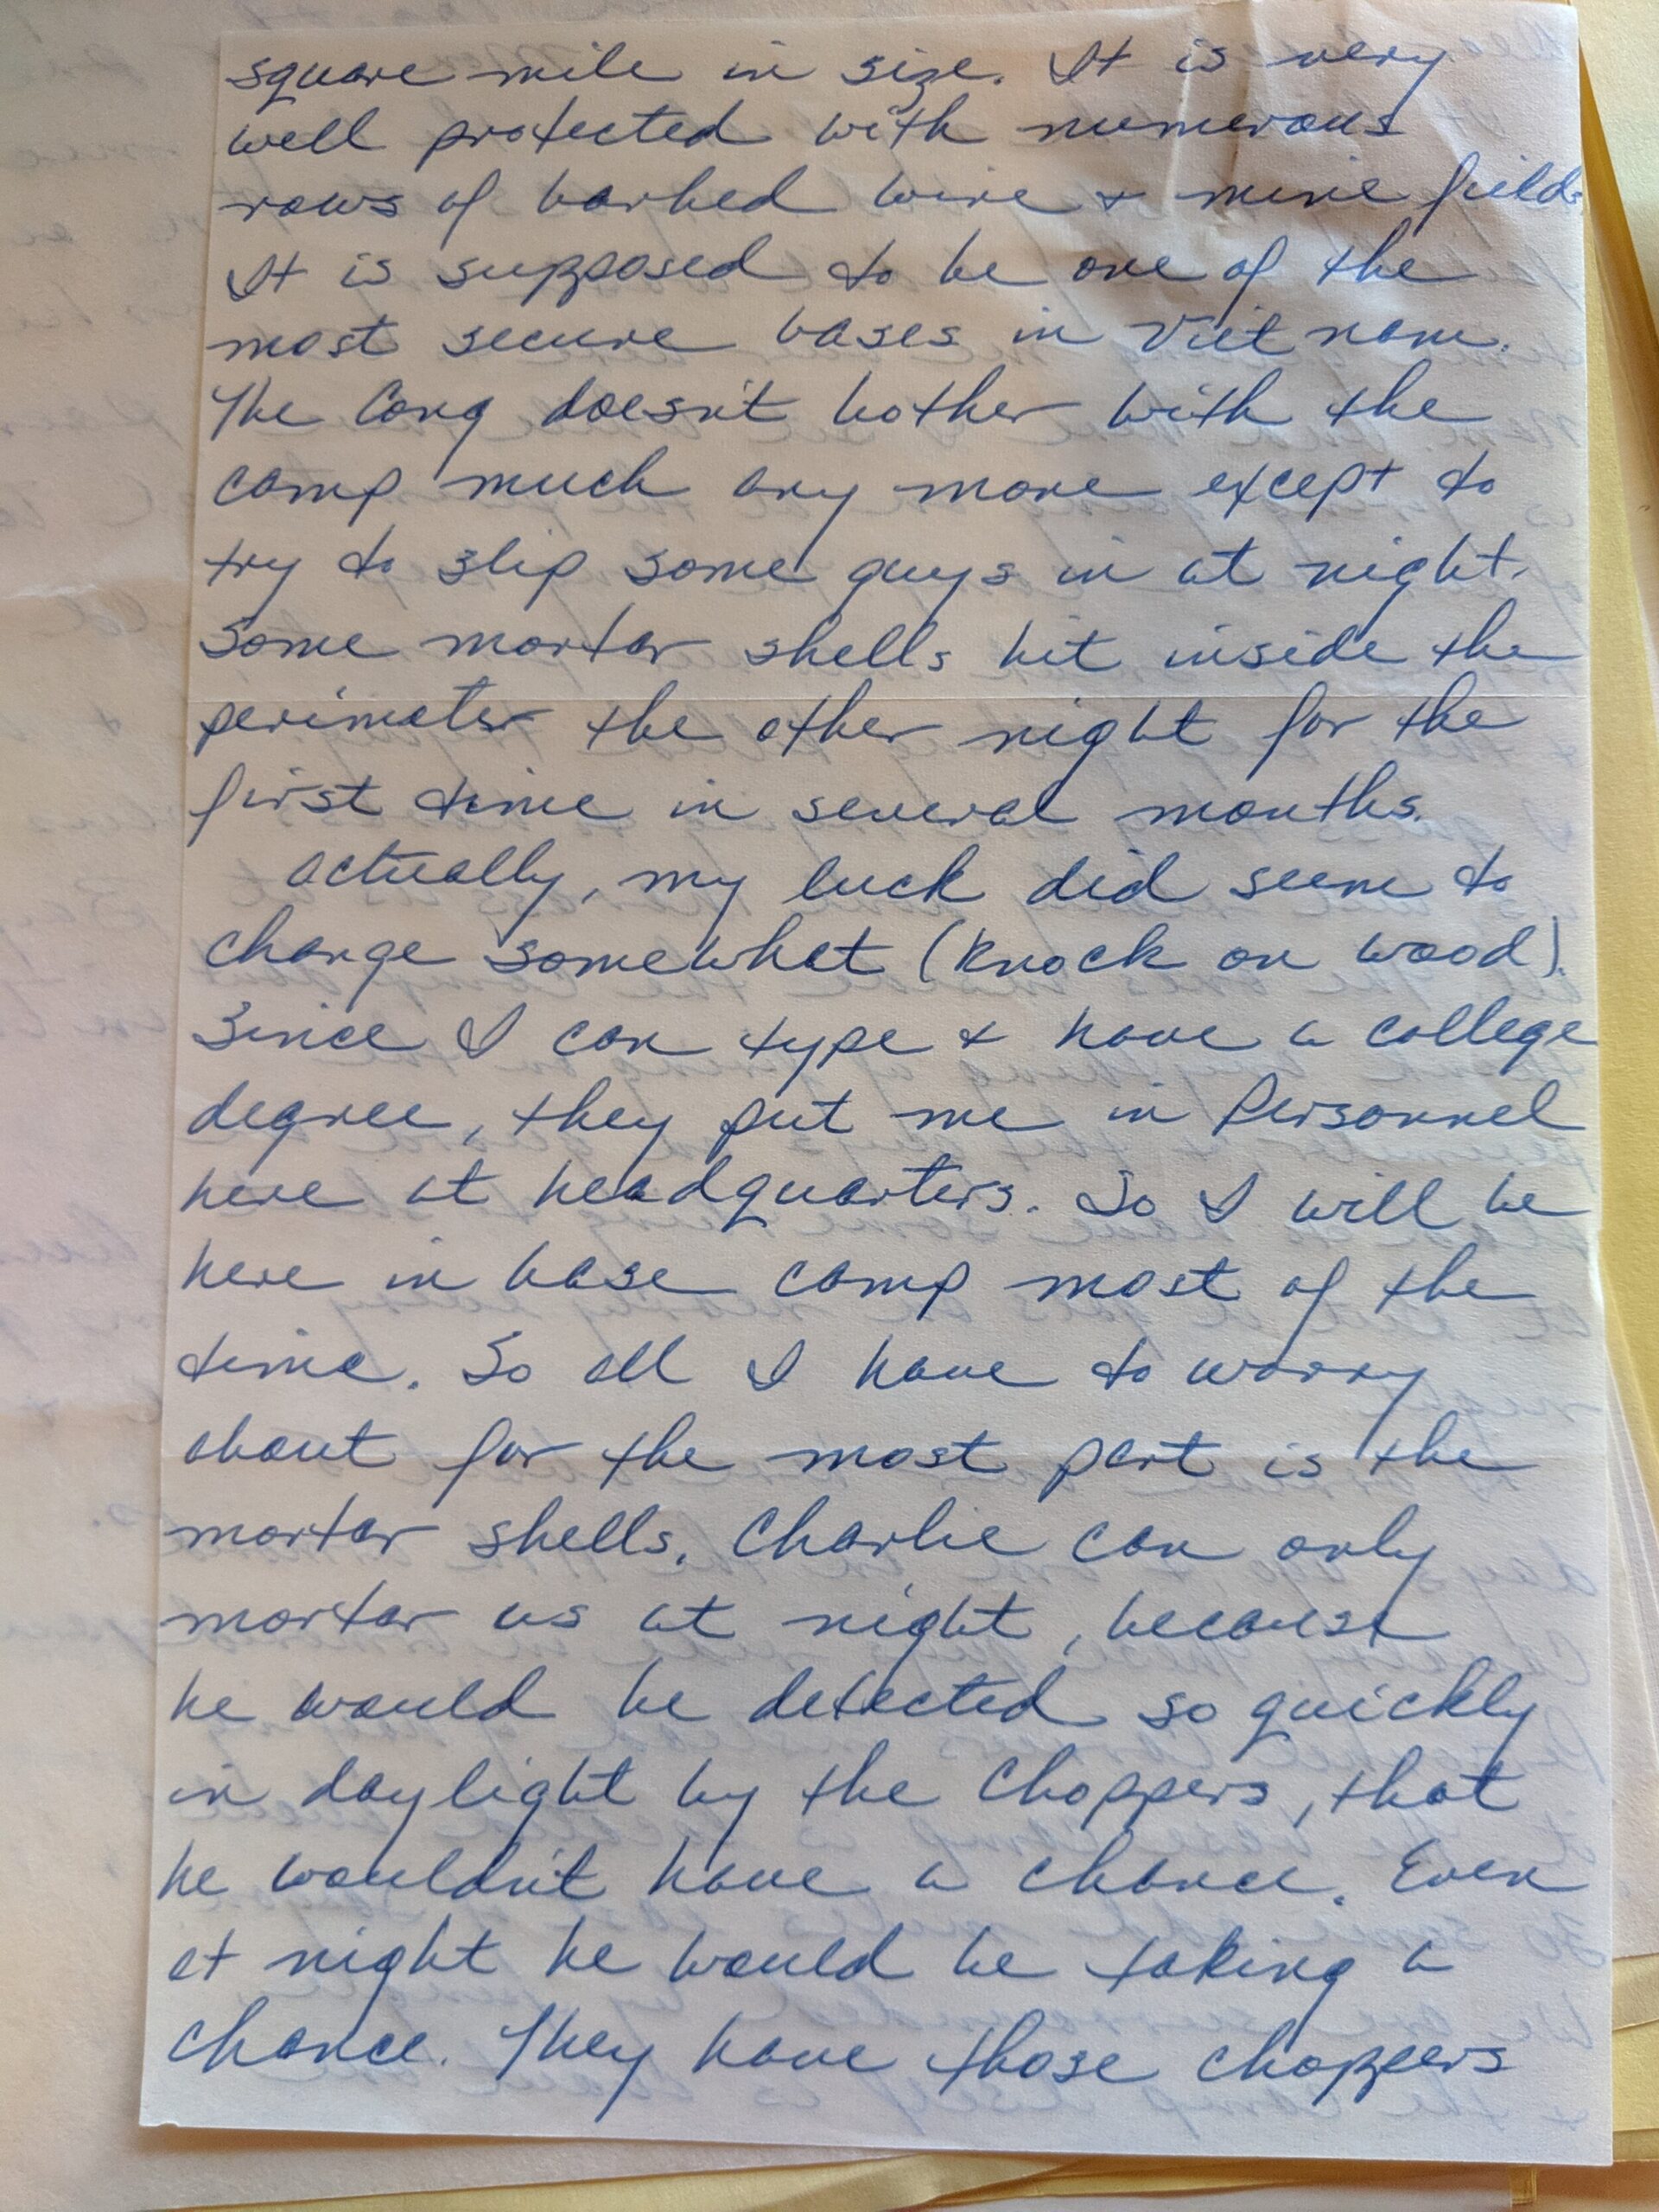 square mile in size. It is very
well protected with numerous
rows of barbed wire + mine fields
It is supposed to be one of the
most secure bases in Viet nam.
The Cong doesn't bother with the
camp much any more except to
try to slip some guys in at night.
Some mortar shells hit inside the
perimeter the other night for the
first time in several months.
Actually, my luck did seem to
change somewhat (knock on wood).
Since I can type + have a college
degree, they put me in Personnel
here at headquarters. So I will be
here in base camp most of the
time. So all I have to worry
about for the most part is the
mortar shells. Charlie can only
mortar us at night, because
he would be detected so quickly
in daylight by the choppers, that
he wouldn't have a chance. Even
at night he would be taking a
chance. They have those choppers